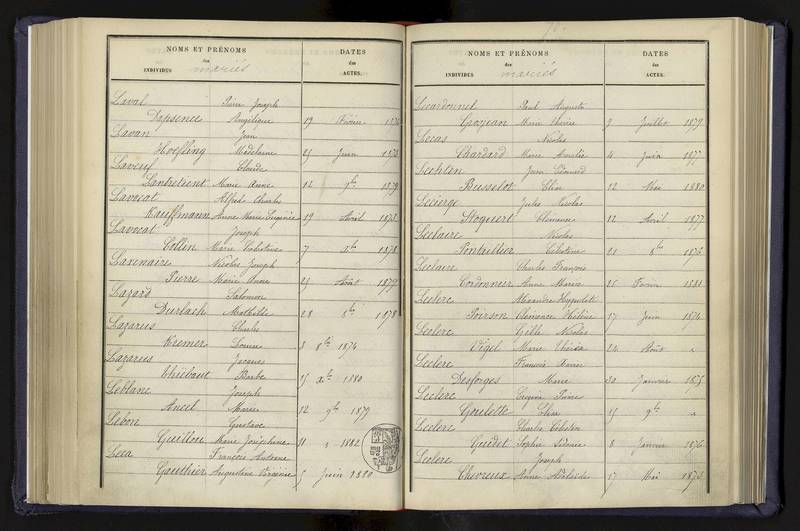 NOMS ET PRÉNOMS
des
INDIVIDUS mariés
DATES
des
ACTES.
Laval Pierre Joseph
Dapsence Angélique 19 Février 1876
Lavan Jean
Hoefling Madeleine 25 Juin 1873
Laveuf Claude
Lantretient Marie Anne 12 9bre 1879
Lavocat Alfred Charles
Kauffmann Anne Marie Eugénie 19 Avril 1873
Lavocat Joseph
Collin Marie Célestine 7 Xbre 1878
Laxenaire Nicolas Joseph
Pierre Marie Anne 25 Août 1877
Lazard Salomon
Durlach Mathilde 28 8bre 1878
Lazarus Charles
Kremer Louise 3 8bre 1874
Lazarus Jacques
Thiébaut Barbe 15 Xbre 1880
Leblanc Joseph
Ancel Marie 12 9bre 1879
Lebon Gustave
Guillou Marie Joséphine 11 1882
Leca François Antoine
Gauthier Augustine Virginie 5 Juin 1880
NOMS ET PRÉNOMS
des
INDIVIDUS mariés
DATES
des
ACTES.
Lecardonnel Paul Auguste
Grosjean Marie Thérèse 9 Juillet 1879
Lecas Nicolas
Chardard Marie Amélie 4 Juin 1877
Lechten Jean Edouard
Busselot Elisa 12 Mai 1880
Lecierge Jules Nicolas
Stoquert Clémence 12 Avril 1877
Leclaire Nicolas
Pontrillier Célestine 21 8bre 1876
Leclaire Charles François
Cordonnier Anne Marie 26 Février 1881
Leclerc Alexandre Hippolyte
Poirson Clémence Hélène 17 Juin 1874
Leclerc Gille Nicolas
Vigel Marie Thérèse 24 Août "
Leclerc François Xavier
Desforges Marie 30 Janvier 1875
Leclerc Eugène Pierre
Goulette Elisa 15 9bre "
Leclerc Charles Célestin
Guidet Sophie Sidonie 8 Janvier 1876
Leclerc Joseph
Chevreux Anne Adélaïde 17 Mai 1873